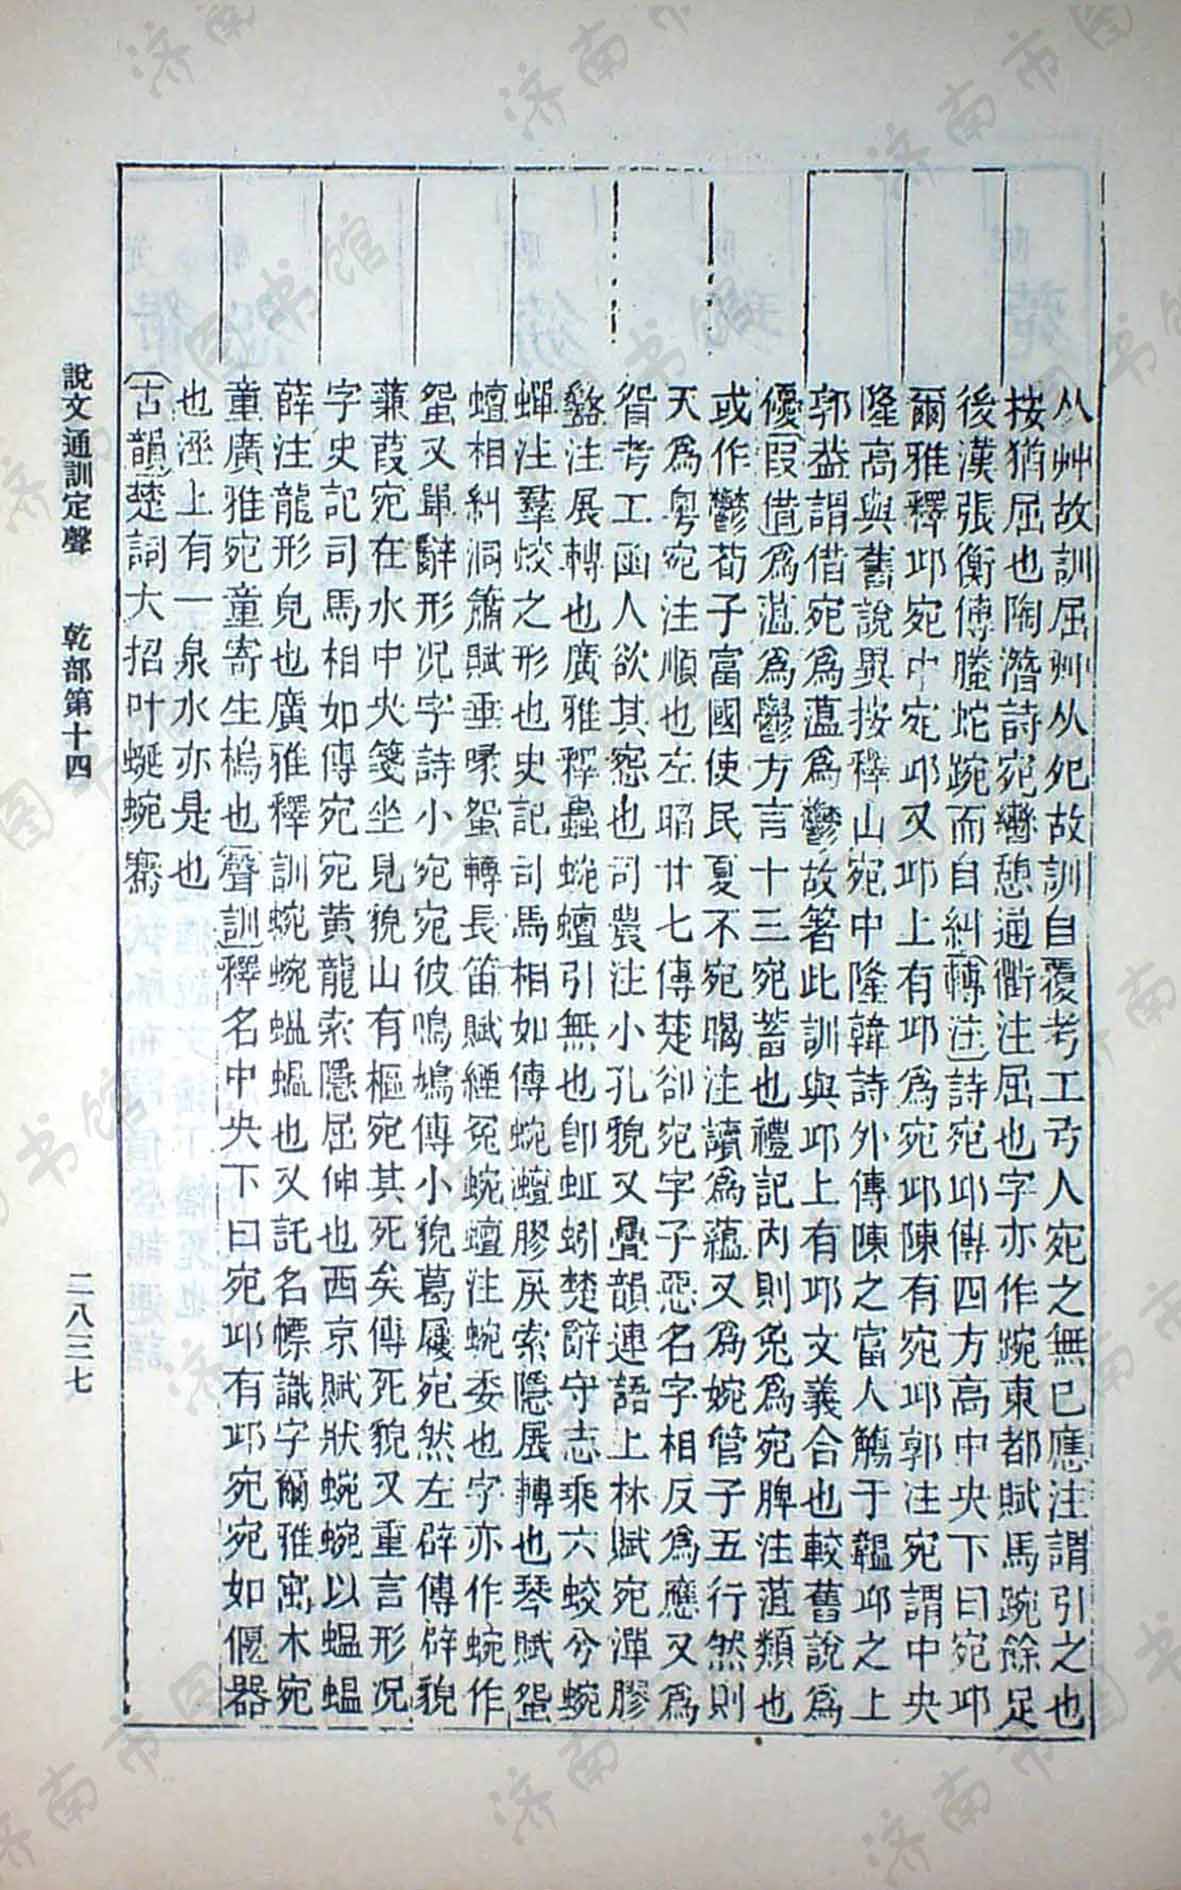 从艸故訓屈艸从夗故訓自覆考工弓人宛之無已應注謂引之也
按猶屈也陶潛詩宛轡憩通衢注屈也字亦作踠東都賦馬踠餘足
後漢張衡傳螣蛇踠而自糾(轉注)詩宛邱傳四方高中央下曰宛邱
爾雅釋邱宛中宛邱又邱上有邱爲宛邱陳有宛邱郭注宛謂中央
隆高與舊說異按釋山宛中隆韓詩外傳陳之富人觴于韞邱之上
郭葢謂借宛爲薀爲鬱故箸此訓與邱上有邱文義合也較舊說爲
優(叚借)爲薀爲鬱方言十三宛蓄也禮記內則兔爲宛脾注菹類也
或作鬱荀子富國使民夏不宛暍注讀爲蘊又爲婉管子五行然則
天爲粵宛注順也左昭廿七傳楚卻宛字子惡名字相反爲應又爲
眢考工函人欲其惌也司農注小孔貌又疊韻連語上林賦宛潬膠
盭注展轉也廣雅釋蟲蜿蟺引無也卽蚯蚓楚辭守志乘六蛟兮蜿
蟬注羣蛟之形也史記司馬相如傳蜿灗膠戾索隱展轉也琴賦䖤
蟺相糾洞簫賦垂喙䖤轉長笛賦緸冤蜿蟺注蜿委也字亦作蜿作
䖤又單辭形况字詩小宛宛彼鳴鳩傳小貌葛屨宛然左辟傳辟貌
蒹葭宛在水中央箋坐見貌山有樞宛其死矣傳死貌又重言形况
字史記司馬相如傳宛宛黃龍索隱屈伸也西京賦狀蜿蜿以蝹蝹
薛注龍形皃也廣雅釋訓蜿蜿蝹蝹也又託名幖識字爾雅寓木宛
童廣雅宛童寄生樢也(聲訓)釋名中央下曰宛邱有邱宛宛如偃器
也涇上有一泉水亦是也
(古韻)楚詞大招叶蜒蜿騫
說文通訓定聲 乾部第十四 二八三七
济南市图书馆